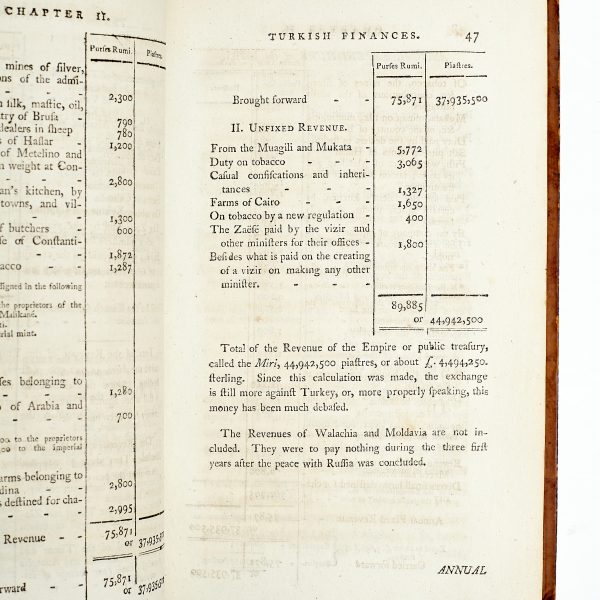 CHAPTER II.
Purſes Rumi. Piaſtres.
mines of ſilver,
ons of the admi-
2,300
n ſilk, maſtic, oil,
try of Bruſa - 790
dealers in ſheep 780
s of Haſlar - 1,200
of Metelino and
n weight at Con-
2,800
an's kitchen, by
towns, and vil-
1,300
f butchers - 600
ſe of Conſtanti-
1,872
acco - 1,287
ſigned in the following
the proprietors of the
Malikané.
rial mint.
ſes belonging to
1,280
o of Arabia and
700
to the proprietors
to the imperial
arms belonging to
dina - 2,800
s deſtined for cha-
2,995
Revenue - - 75,871
or
ward - - 75,871
or
TURKISH FINANCES. 47
Purſes Rumi. Piaſtres.
Brought forward - - 75,871 37,935,500
II. UNFIXED REVENUE.
From the Muagili and Mukata - 5,772
Duty on tobacco - - 3,065
Caſual confiſcations and inheri-
tances - - - 1,327
Farms of Cairo - - 1,650
On tobacco by a new regulation - 400
The Zaëſé paid by the vizir and
other miniſters for their offices - 1,800
Beſides what is paid on the creating
of a vizir on making any other
miniſter. - - -
89,885
or 44,942,500
Total of the Revenue of the Empire or public treaſury,
called the Miri, 44,942,500 piaſtres, or about £. 4,494,250.
ſterling. Since this calculation was made, the exchange
is ſtill more againſt Turkey, or, more properly ſpeaking, this
money has been much debaſed.
The Revenues of Walachia and Moldavia are not in-
cluded. They were to pay nothing during the three firſt
years after the peace with Ruſſia was concluded.
ANNUAL